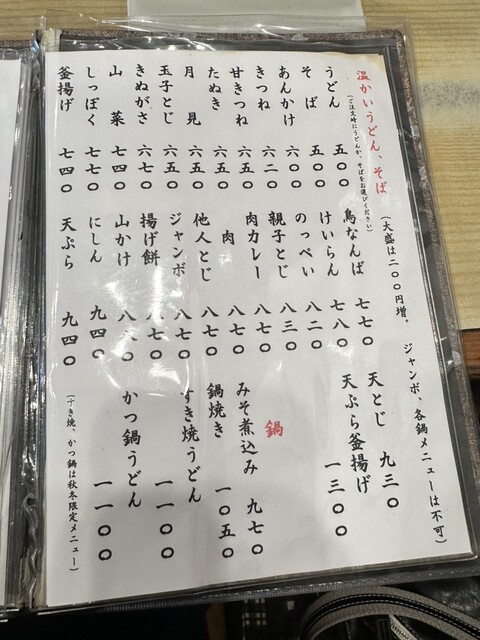 温かいうどん、そば
(ご注文時にうどんか、そばをお選びください)
(大盛は二〇〇円増。 ジャンボ、各鍋メニューは不可)
うどん 五〇〇
そば 五〇〇
あんかけ 六〇〇
きつね 六二〇
甘きつね 六五〇
たぬき 六五〇
月見 六五〇
玉子とじ 六五〇
きぬがさ 六七〇
山菜 七四〇
しっぽく 七七〇
釜揚げ 七四〇
鳥なんば 七七〇
けいらん 七八〇
のっぺい 八二〇
親子とじ 八三〇
肉カレー 八七〇
肉 八七〇
他人とじ 八七〇
ジャンボ 八七〇
揚げ餅 八七〇
山かけ 八八〇
にしん 九四〇
天ぷら 九四〇
天とじ 九三〇
天ぷら釜揚げ 一三〇〇
鍋
みそ煮込み 九七〇
鍋焼き 一〇五〇
すき焼うどん 一一〇〇
かつ鍋うどん 一一〇〇
(すき焼、かつ鍋は秋冬限定メニュー)